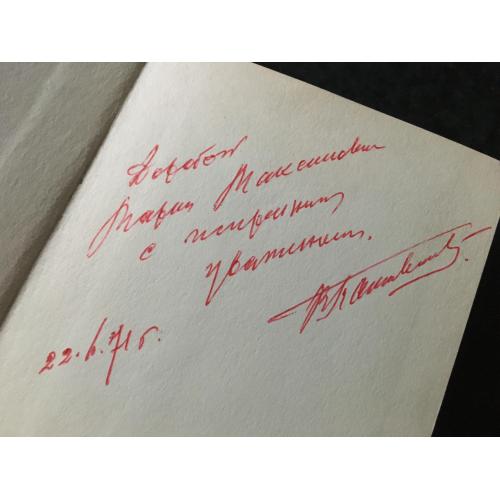 Дорогой
Марии Максимовне
с искренним
уважением.
22.6.71г.